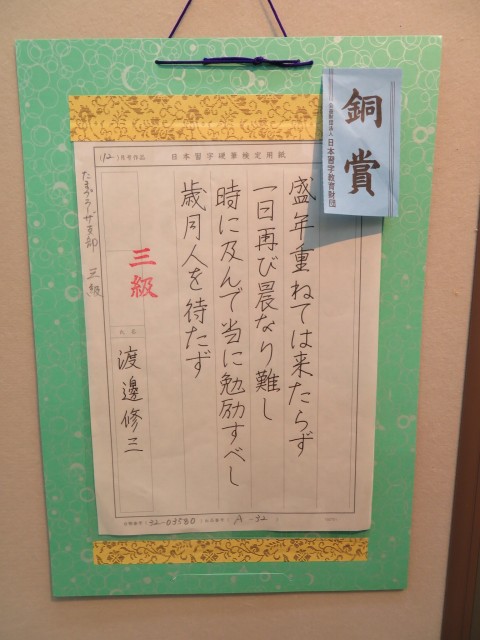 銅賞
公益財団法人 日本習字教育財団
(12)月号作品 日本習字硬筆検定用紙
盛年重ねては来たらず
一日再び晨なり難し
時に及んで当に勉励すべし
歳月人を待たず
三級
氏名
渡邊修三
たまプラーザ支部 三級
会員番号(32-03580)
A-32